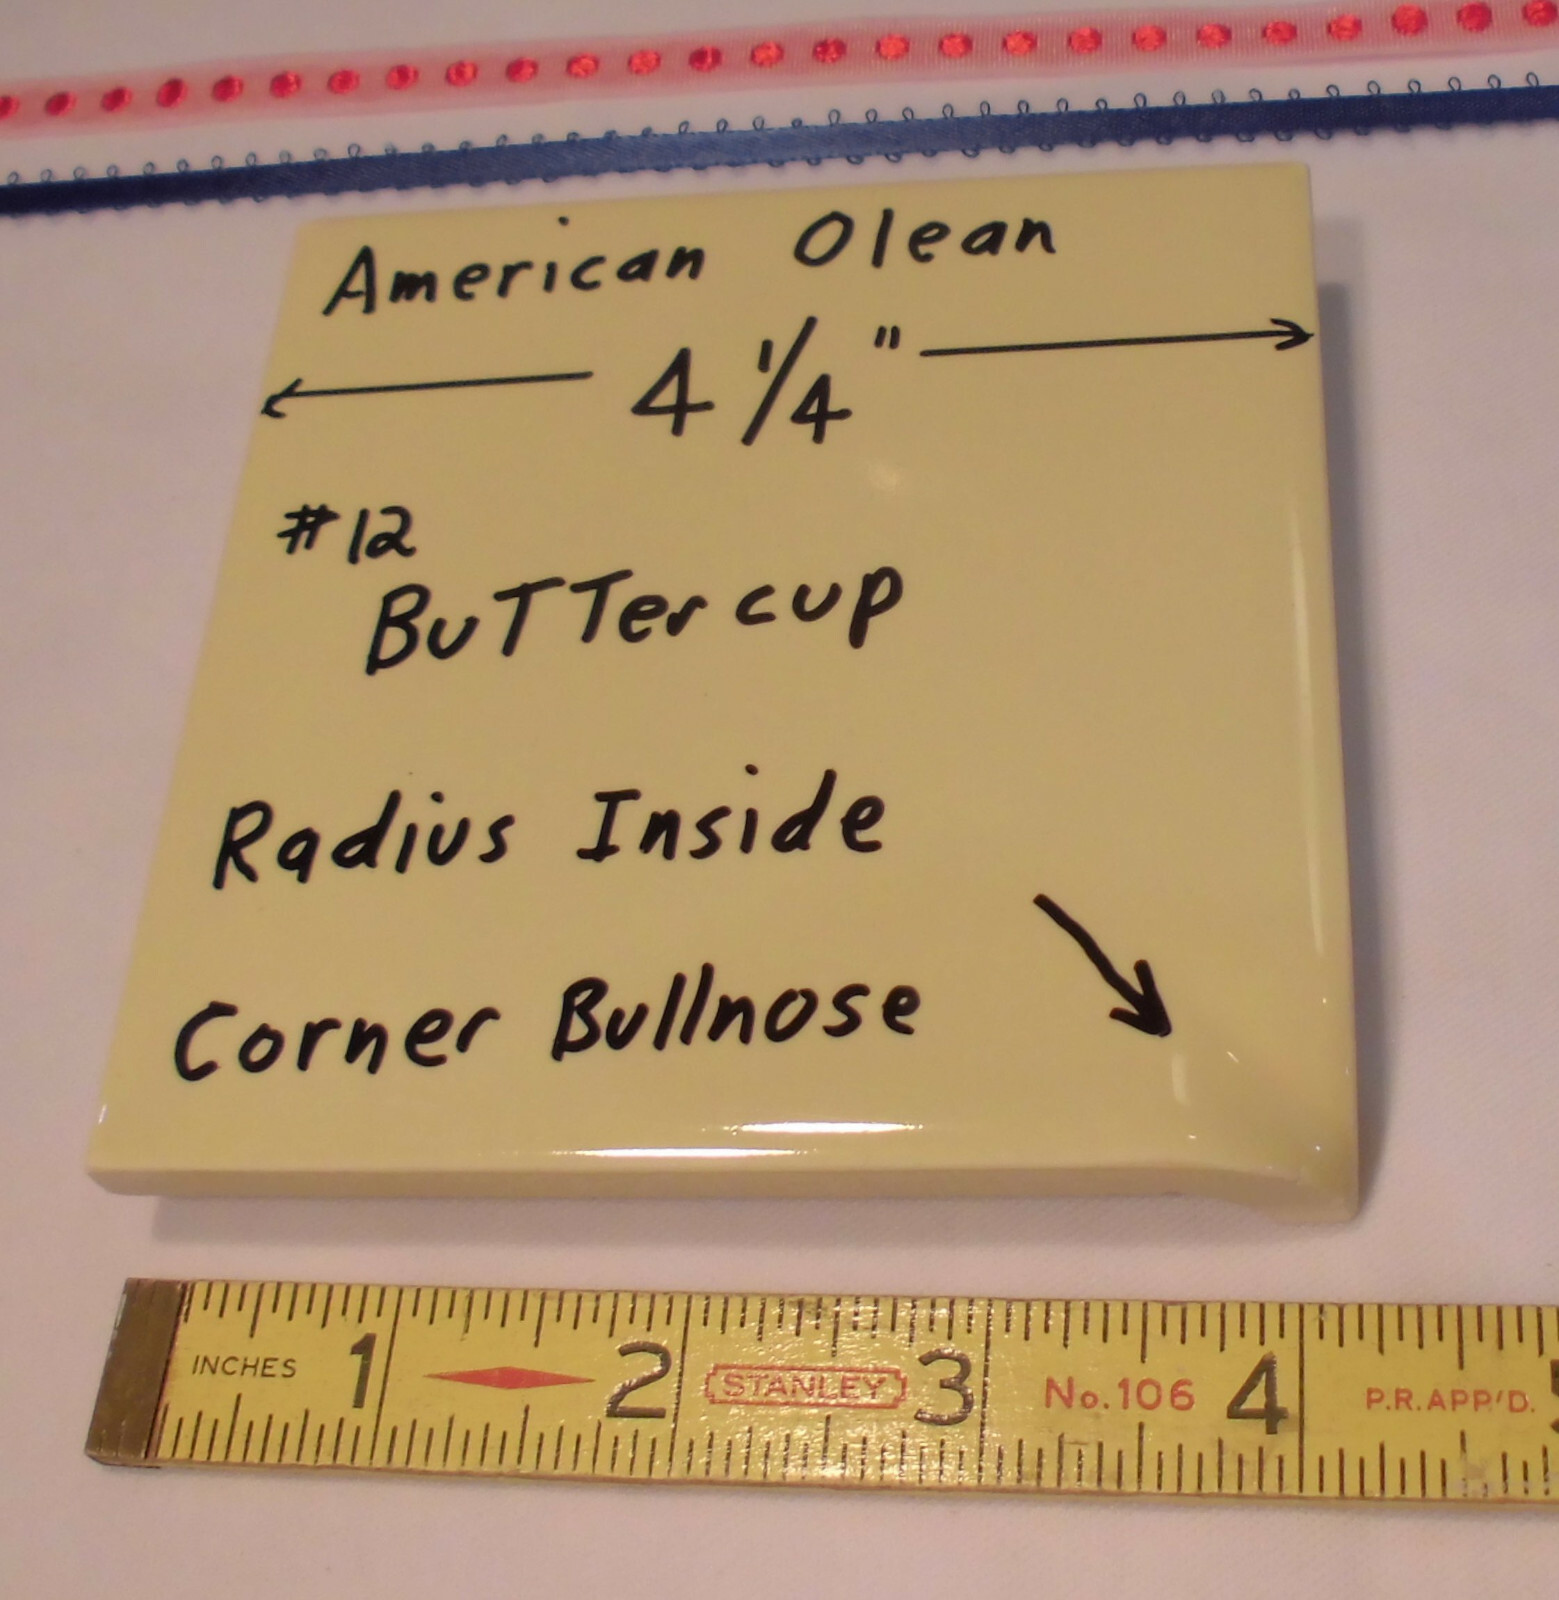 American Olean
4 1/4"
#12
Buttercup
Radius Inside
Corner Bullnose
INCHES 1 2 STANLEY 3 No.106 4 P.R.APP'D.